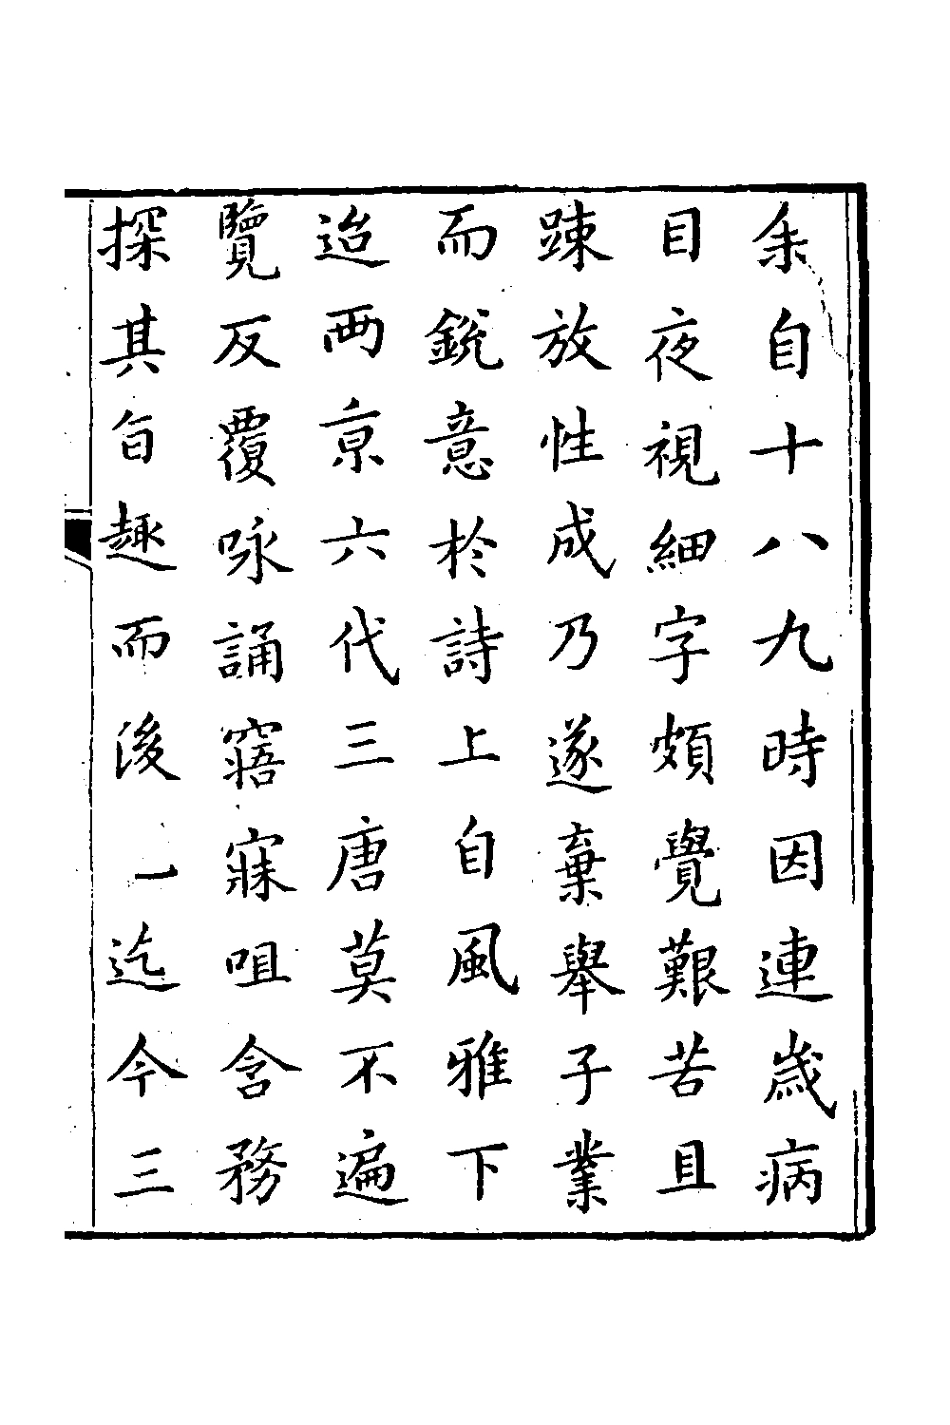 余自十八九時因連歲病
目夜視細字頗覺艱苦且
踈放性成乃遂棄舉子業
而銳意於詩上自風雅下
迨兩京六代三唐莫不遍
覽反覆咏誦寤寐咀含務
探其旨趣而後一迄今三